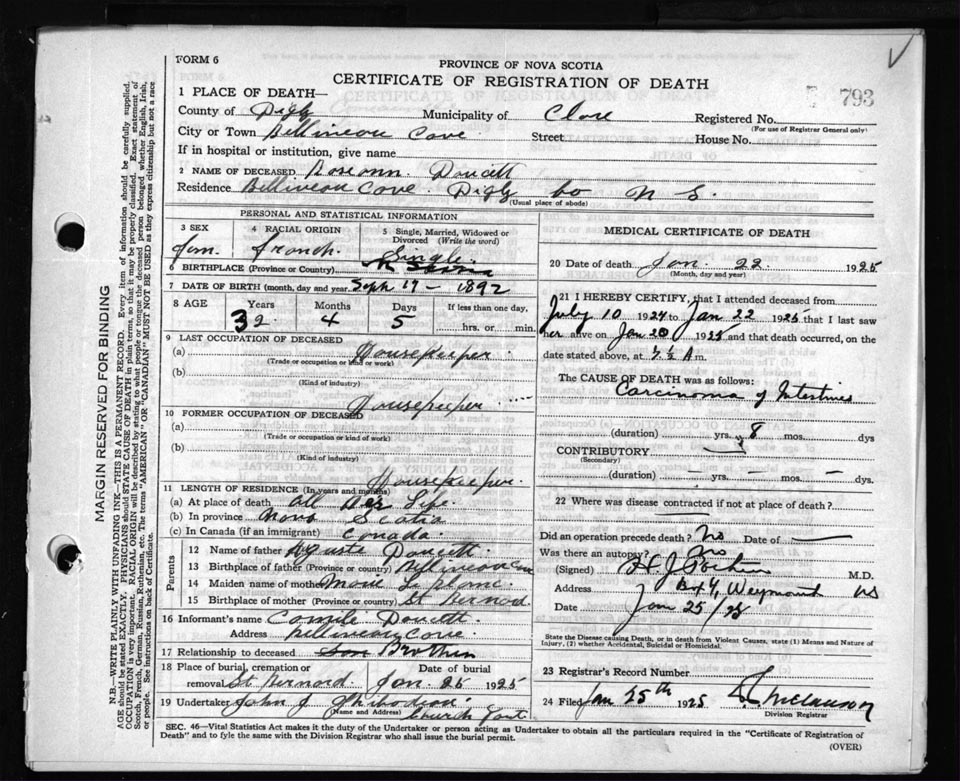 FORM 6
PROVINCE OF NOVA SCOTIA
CERTIFICATE OF REGISTRATION OF DEATH
793
1 PLACE OF DEATH—
County of Digby Municipality of Clare Registered No.
(For use of Registrar General only)
City or Town Bellineau Cove Street House No.
If in hospital or institution, give name
2 NAME OF DECEASED Roseann Doucett
Residence Belliveau Cove. Digby Co N S.
(Usual place of abode)
PERSONAL AND STATISTICAL INFORMATION
3 SEX 4 RACIAL ORIGIN 5 Single, Married, Widowed or Divorced (Write the word)
Fem. French. Single.
6 BIRTHPLACE (Province or Country) N Scotia
7 DATE OF BIRTH (month, day and year) Sept 17 - 1892
8 AGE Years Months Days If less than one day,
32 4 5 hrs. or min.
9 LAST OCCUPATION OF DECEASED
(a) Housekeeper.
(Trade or occupation or kind or work)
(b)
(Kind of industry)
10 FORMER OCCUPATION OF DECEASED Housekeeper
(a)
(Trade or occupation or kind of work)
(b)
(Kind of industry)
Housekeeper.
11 LENGTH OF RESIDENCE (In years and months)
(a) At place of death all Her Life.
(b) In province Nova Scotia
(c) In Canada (if an immigrant) Canada.
Parents
12 Name of father Auguste Doucett.
13 Birthplace of father (Province or country) Bellineau Cove
14 Maiden name of mother Marie Leblanc.
15 Birthplace of mother (Province or country) St Bernard.
16 Informant's name Camile Doucett
Address Bellineau Cove.
17 Relationship to deceased Son Brother
18 Place of burial, cremation or Date of burial
removal St Bernard. Jan. 25 1925
19 Undertaker John J Thibodeau
(Name and Address) Church Point
MEDICAL CERTIFICATE OF DEATH
20 Date of death Jan. 22. 1925
(Month, day and year)
21 I HEREBY CERTIFY, that I attended deceased from
July 10 1924 to Jan 22 1925 that I last saw
her alive on Jan 20 1925 and that death occurred, on the
date stated above, at 7.½ A m.
The CAUSE OF DEATH was as follows:
Carcinoma of Intestines
(duration) yrs. 8 mos. dys
CONTRIBUTORY
(Secondary)
(duration) - yrs. - mos. - dys.
22 Where was disease contracted if not at place of death?
Did an operation precede death? No Date of —
Was there an autopsy? No
(Signed) M.D.
Address Weymouth NS
Date Jan 25/25
State the Disease causing Death, or in death from Violent Causes, state (1) Means and Nature of
Injury, (2) whether Accidental, Suicidal or Homicidal.
23 Registrar's Record Number
24 Filed Jan 25th 1925
Division Registrar
SEC. 46—Vital Statistics Act makes it the duty of the Undertaker or person acting as Undertaker to obtain all the particulars required in the "Certificate of Registration of
Death" and to fyle the same with the Division Registrar who shall issue the burial permit.
(OVER)
MARGIN RESERVED FOR BINDING
N.B.—WRITE PLAINLY WITH UNFADING INK—THIS IS A PERMANENT RECORD. Every item of information should be carefully supplied.
AGE should be stated EXACTLY. PHYSICIANS should STATE CAUSE OF DEATH in plain terms, so that it may be properly classified. Exact statement of
OCCUPATION is very important. RACIAL ORIGIN will be described by stating to what people or tongue the deceased person belonged whether English, Irish,
Scotch, French, German, Russian, Ruthenian, etc. The terms "AMERICAN" OR "CANADIAN" MUST NOT BE USED as they express citizenship but not a race
or people. See instructions on back of Certificate.